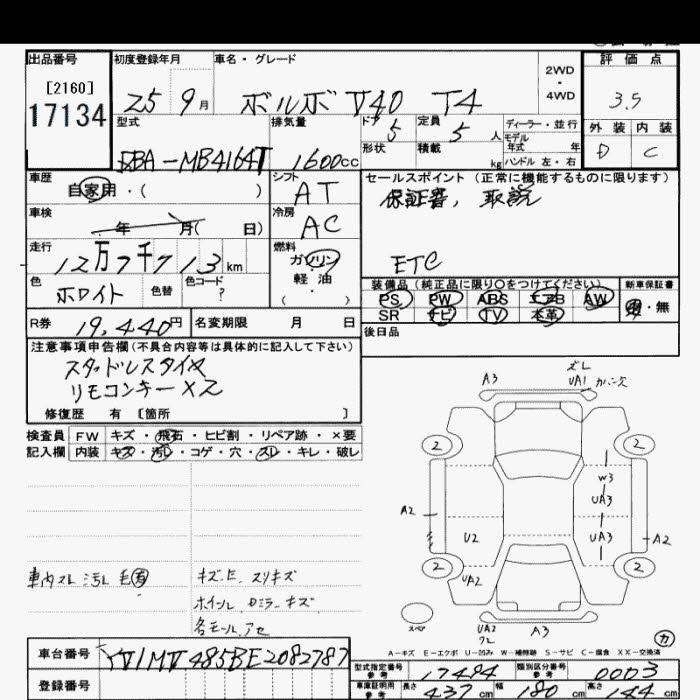 出品番号 初度登録年月 車名・グレード 2WD・4WD 評価点
[2160]
17134
25 9月 ボルボ V40 T4
3.5
型式 排気量 ドア 定員 ディーラー・並行 外装 内装
5 5人 モデル年式 年
DBA-MB4164T 1600cc 形状 積載 kg ハンドル 左・右 D C
車歴 シフト セールスポイント(正常に機能するものに限ります)
自家用・( ) AT 保証書, 取説
車検 冷房
年 月( 日) AC
走行 燃料
12万7千713km ガソリン ETC
色 色替 色コード 軽油
ホワイト ? ( )
装備品(純正品に限り○をつけてください) 新車保証書
PS PW ABS エアB AW 有・無
SR ナビ TV 本革
R券 19,440円 名変期限 月 日
後日品
注意事項申告欄(不具合内容等は具体的に記入して下さい)
スタッドレスタイヤ
リモコンキー×2
修復歴 有 [箇所 ]
検査員 FW キズ・飛石・ヒビ割・リペア跡・×要
記入欄 内装 キズ・汚レ・コゲ・穴・スレ・キレ・破レ
A3 ズレ
UA1
2 2
W3
UA3
A2 U2 UA3 A2
2 2
UA2
スペ UA2 A3
車内スレ 汚レ 毛有 キズ.E.スリキズ
ホイール.Dミラーキズ
各モール.アセ
A−キズ E−エクボ U−凹み W−補修跡 S−サビ C−腐食 XX−交換済
車台番号 YV1MV485BE2082787
登録番号
型式指定番号 参考 17494 類別区分番号 参考 0003
車庫証明用 参考 長さ 437cm 幅 180cm 高さ 144cm